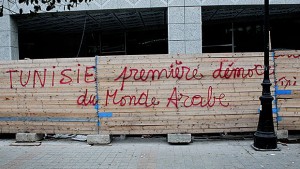 TUNISIE première démoc
du Monde Arabe